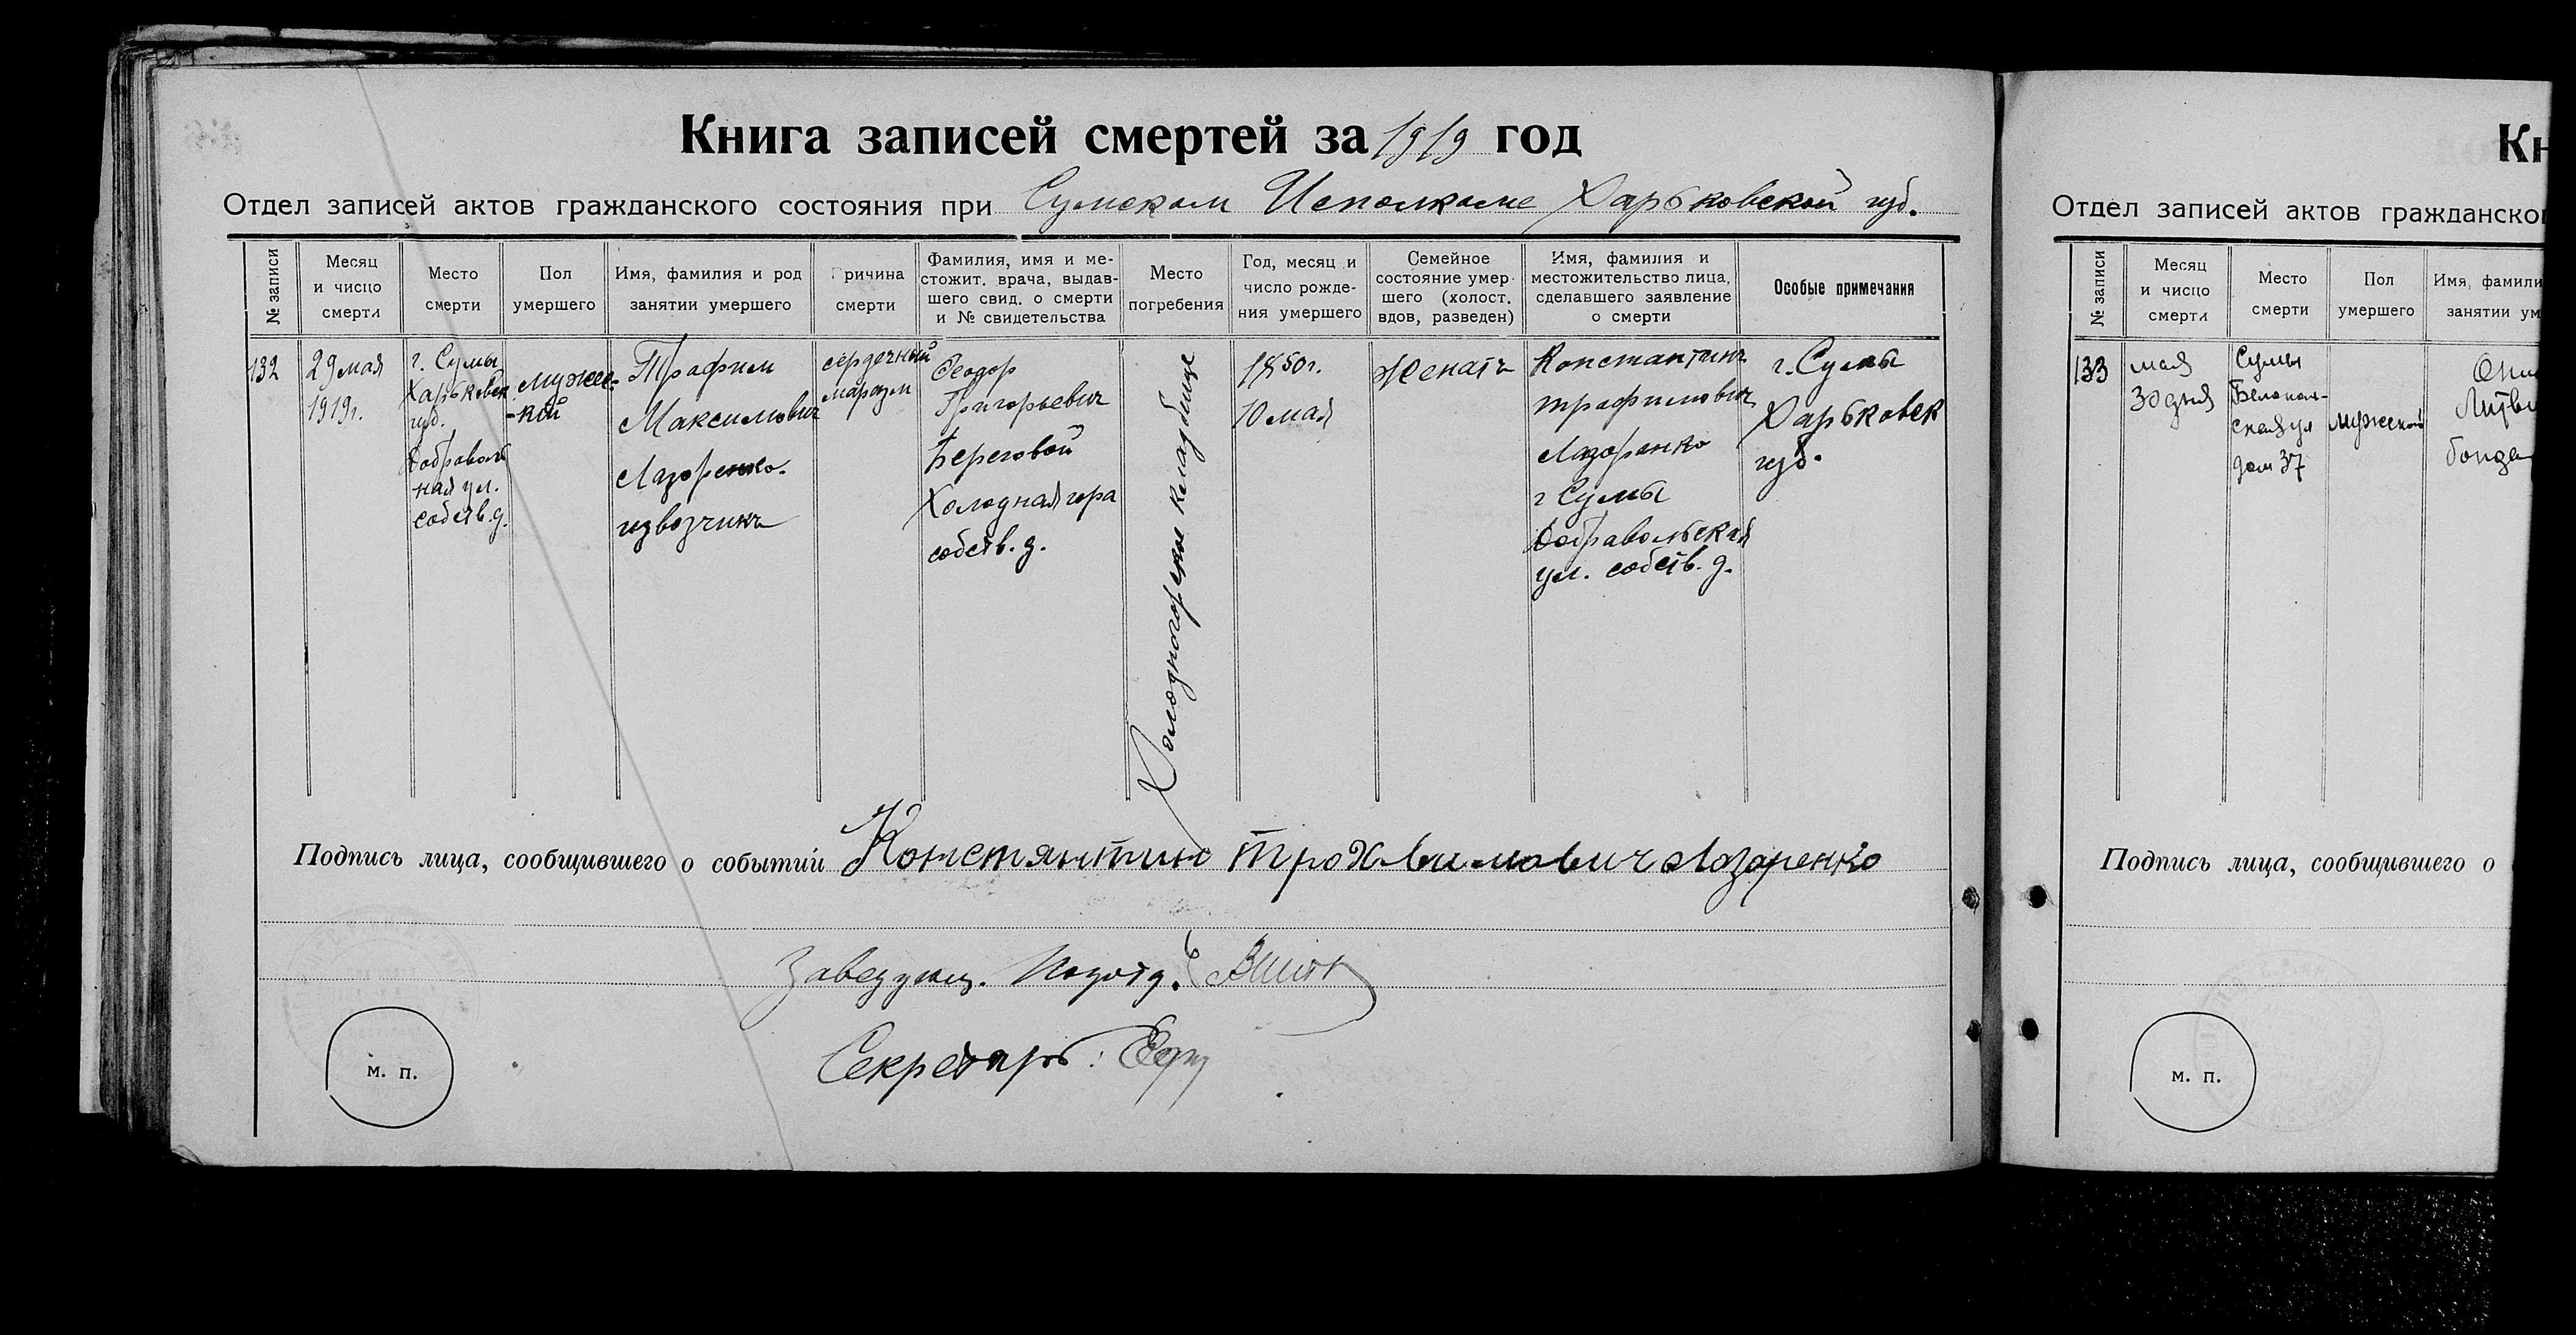 Книга записей смертей за 1919 год
Отдел записей актов гражданского состояния при Сумском Исполкоме Харьковской губ.
№ записи
Месяц
и число
смерти
Место
смерти
Пол
умершего
Имя, фамилия и род
занятии умершего
Причина
смерти
Фамилия, имя и ме-
стожит. врача, выдав-
шего свид. о смерти
и № свидетельства
Место
погребения
Год, месяц и
число рожде-
ния умершего
Семейное
состояние умер-
шего (холост.
вдов, разведен)
Имя, фамилия и
местожительство лица,
сделавшего заявление
о смерти
Особые примечания
132
29 мая
1919г.
г. Сумы
Харьковск
губ.
Добраволь
ная ул.
собств. д.
мужес-
-кій
Трафим
Максимович
Лазоренко.
извозчикъ
сердечный
маразм
Феодор
Григорьевич
Береговой
Холодная гора
собств. д.
Холодногорское кладбище
1850г.
10 мая
Женатъ
Константинъ
Трафимович
Лазоренко
г Сумы
Добравольская
ул. собств. д.
г. Сумы
Харьковск
губ.
Подпись лица, сообщившего о событии Констянтин Трохвимович Лазаренко
Заведующ. Подотд.
Секретарь:
м. п.
Кн
Отдел записей актов гражданског
№ записи
Месяц
и число
смерти
Место
смерти
Пол
умершего
Имя, фамили
занятии ум
133
мая
30 дня
Сумы
Белопол-
ская ул
дом 37
мужской
Подпись лица, сообщившего о
м. п.